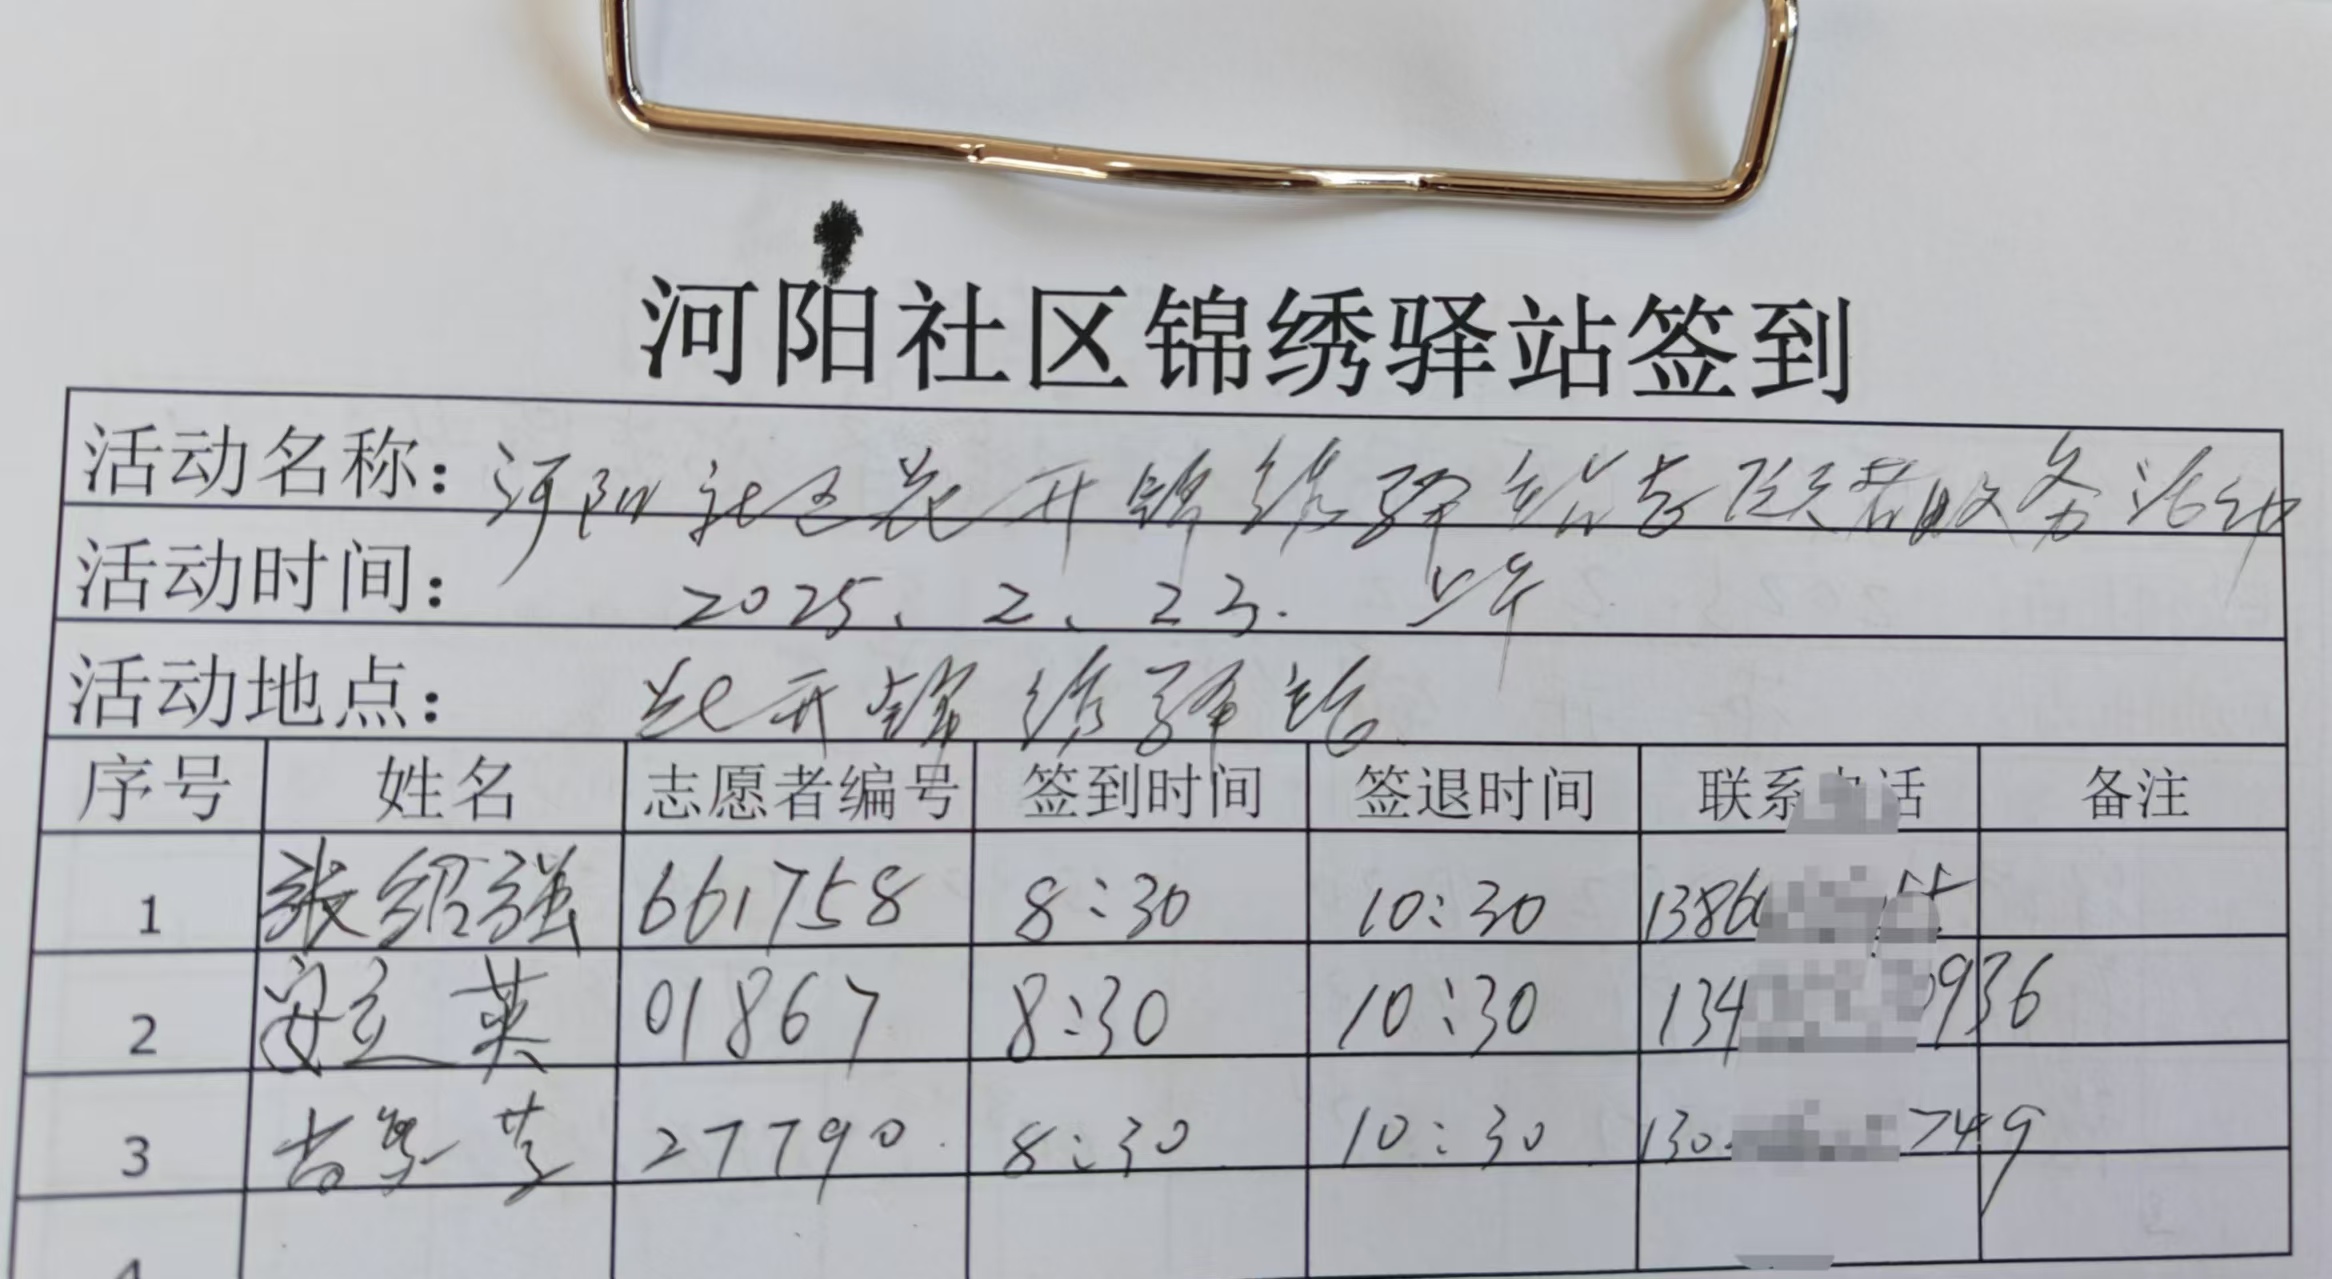 河阳社区锦绣驿站签到
活动名称：河阳社区花开锦绣驿站志愿者服务活动
活动时间：2025、2、23. 上午
活动地点：花开锦绣驿站
序号 姓名 志愿者编号 签到时间 签退时间 联系 话 备注
1 张绍强 661758 8:30 10:30 1386
2 安立英 01867 8:30 10:30 134 936
3 27790 8:30 10:30 130 749
4